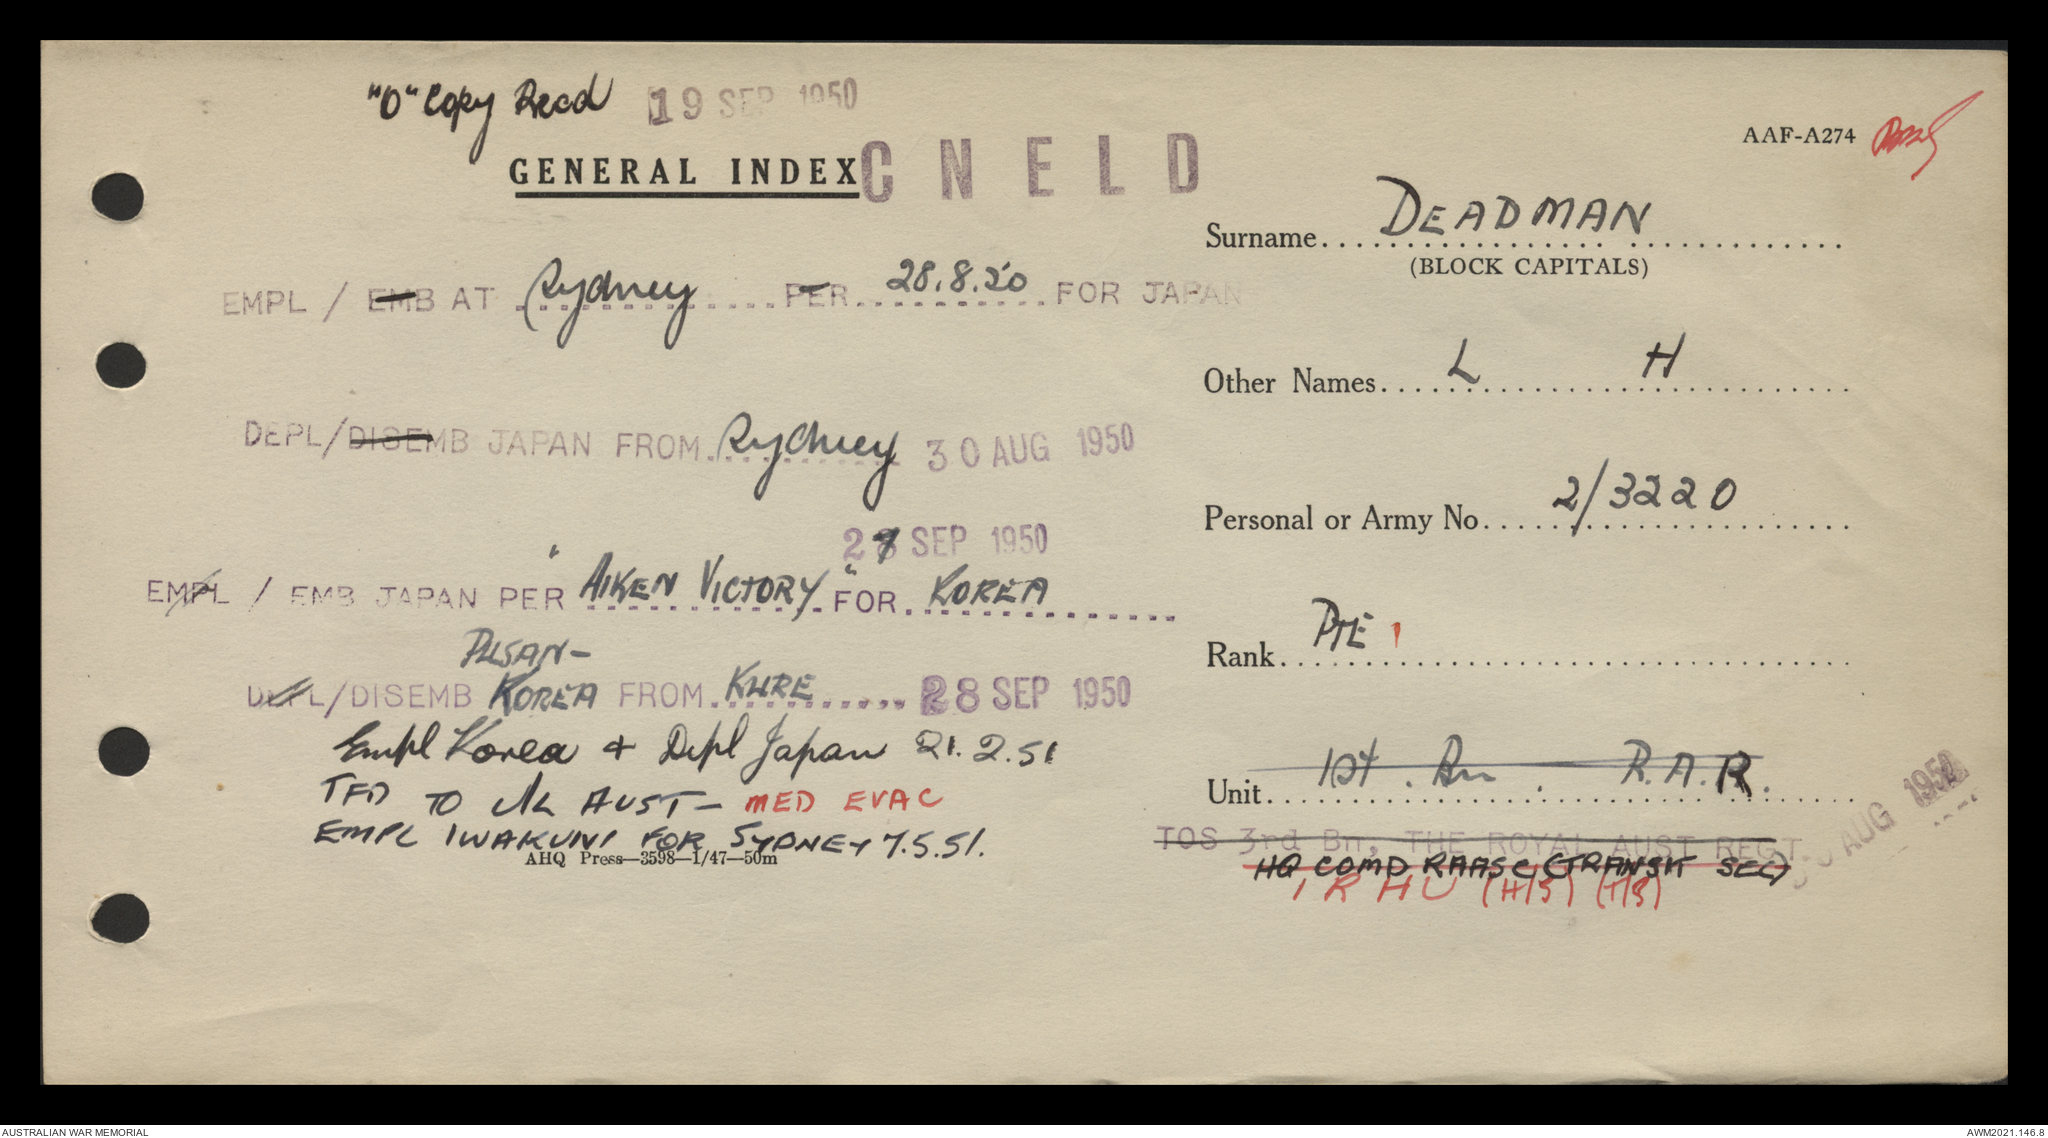 "O" Copy Recd 19 SEP 1950
GENERAL INDEX
CNELD
AAF-A274
Surname DEADMAN
(BLOCK CAPITALS)
EMPL / EMB AT Sydney PER 28.8.50 FOR JAPAN
Other Names L H
DEPL/DISEMB JAPAN FROM Sydney 30 AUG 1950
Personal or Army No. 2/3220
27 SEP 1950
EMPL / EMB JAPAN PER "AIKEN VICTORY" FOR KOREA
Rank PTE 1
PUSAN-
DEPL/DISEMB KOREA FROM KURE 28 SEP 1950
Empl Korea + Depl Japan 21.2.51
Unit 1st. Bn. R.A.R.
TFD TO X/L AUST - MED EVAC
EMPL IWAKUNI FOR SYDNEY 7.5.51.
TOS 3rd Bn, THE ROYAL AUST REGT. AUG 1950
AHQ Press—3598—1/47—50m
HQ COMD RAASC (TRANSIT SEC)
1 R H U (H/S) (T/S)
AUSTRALIAN WAR MEMORIAL
AWM2021.146.8